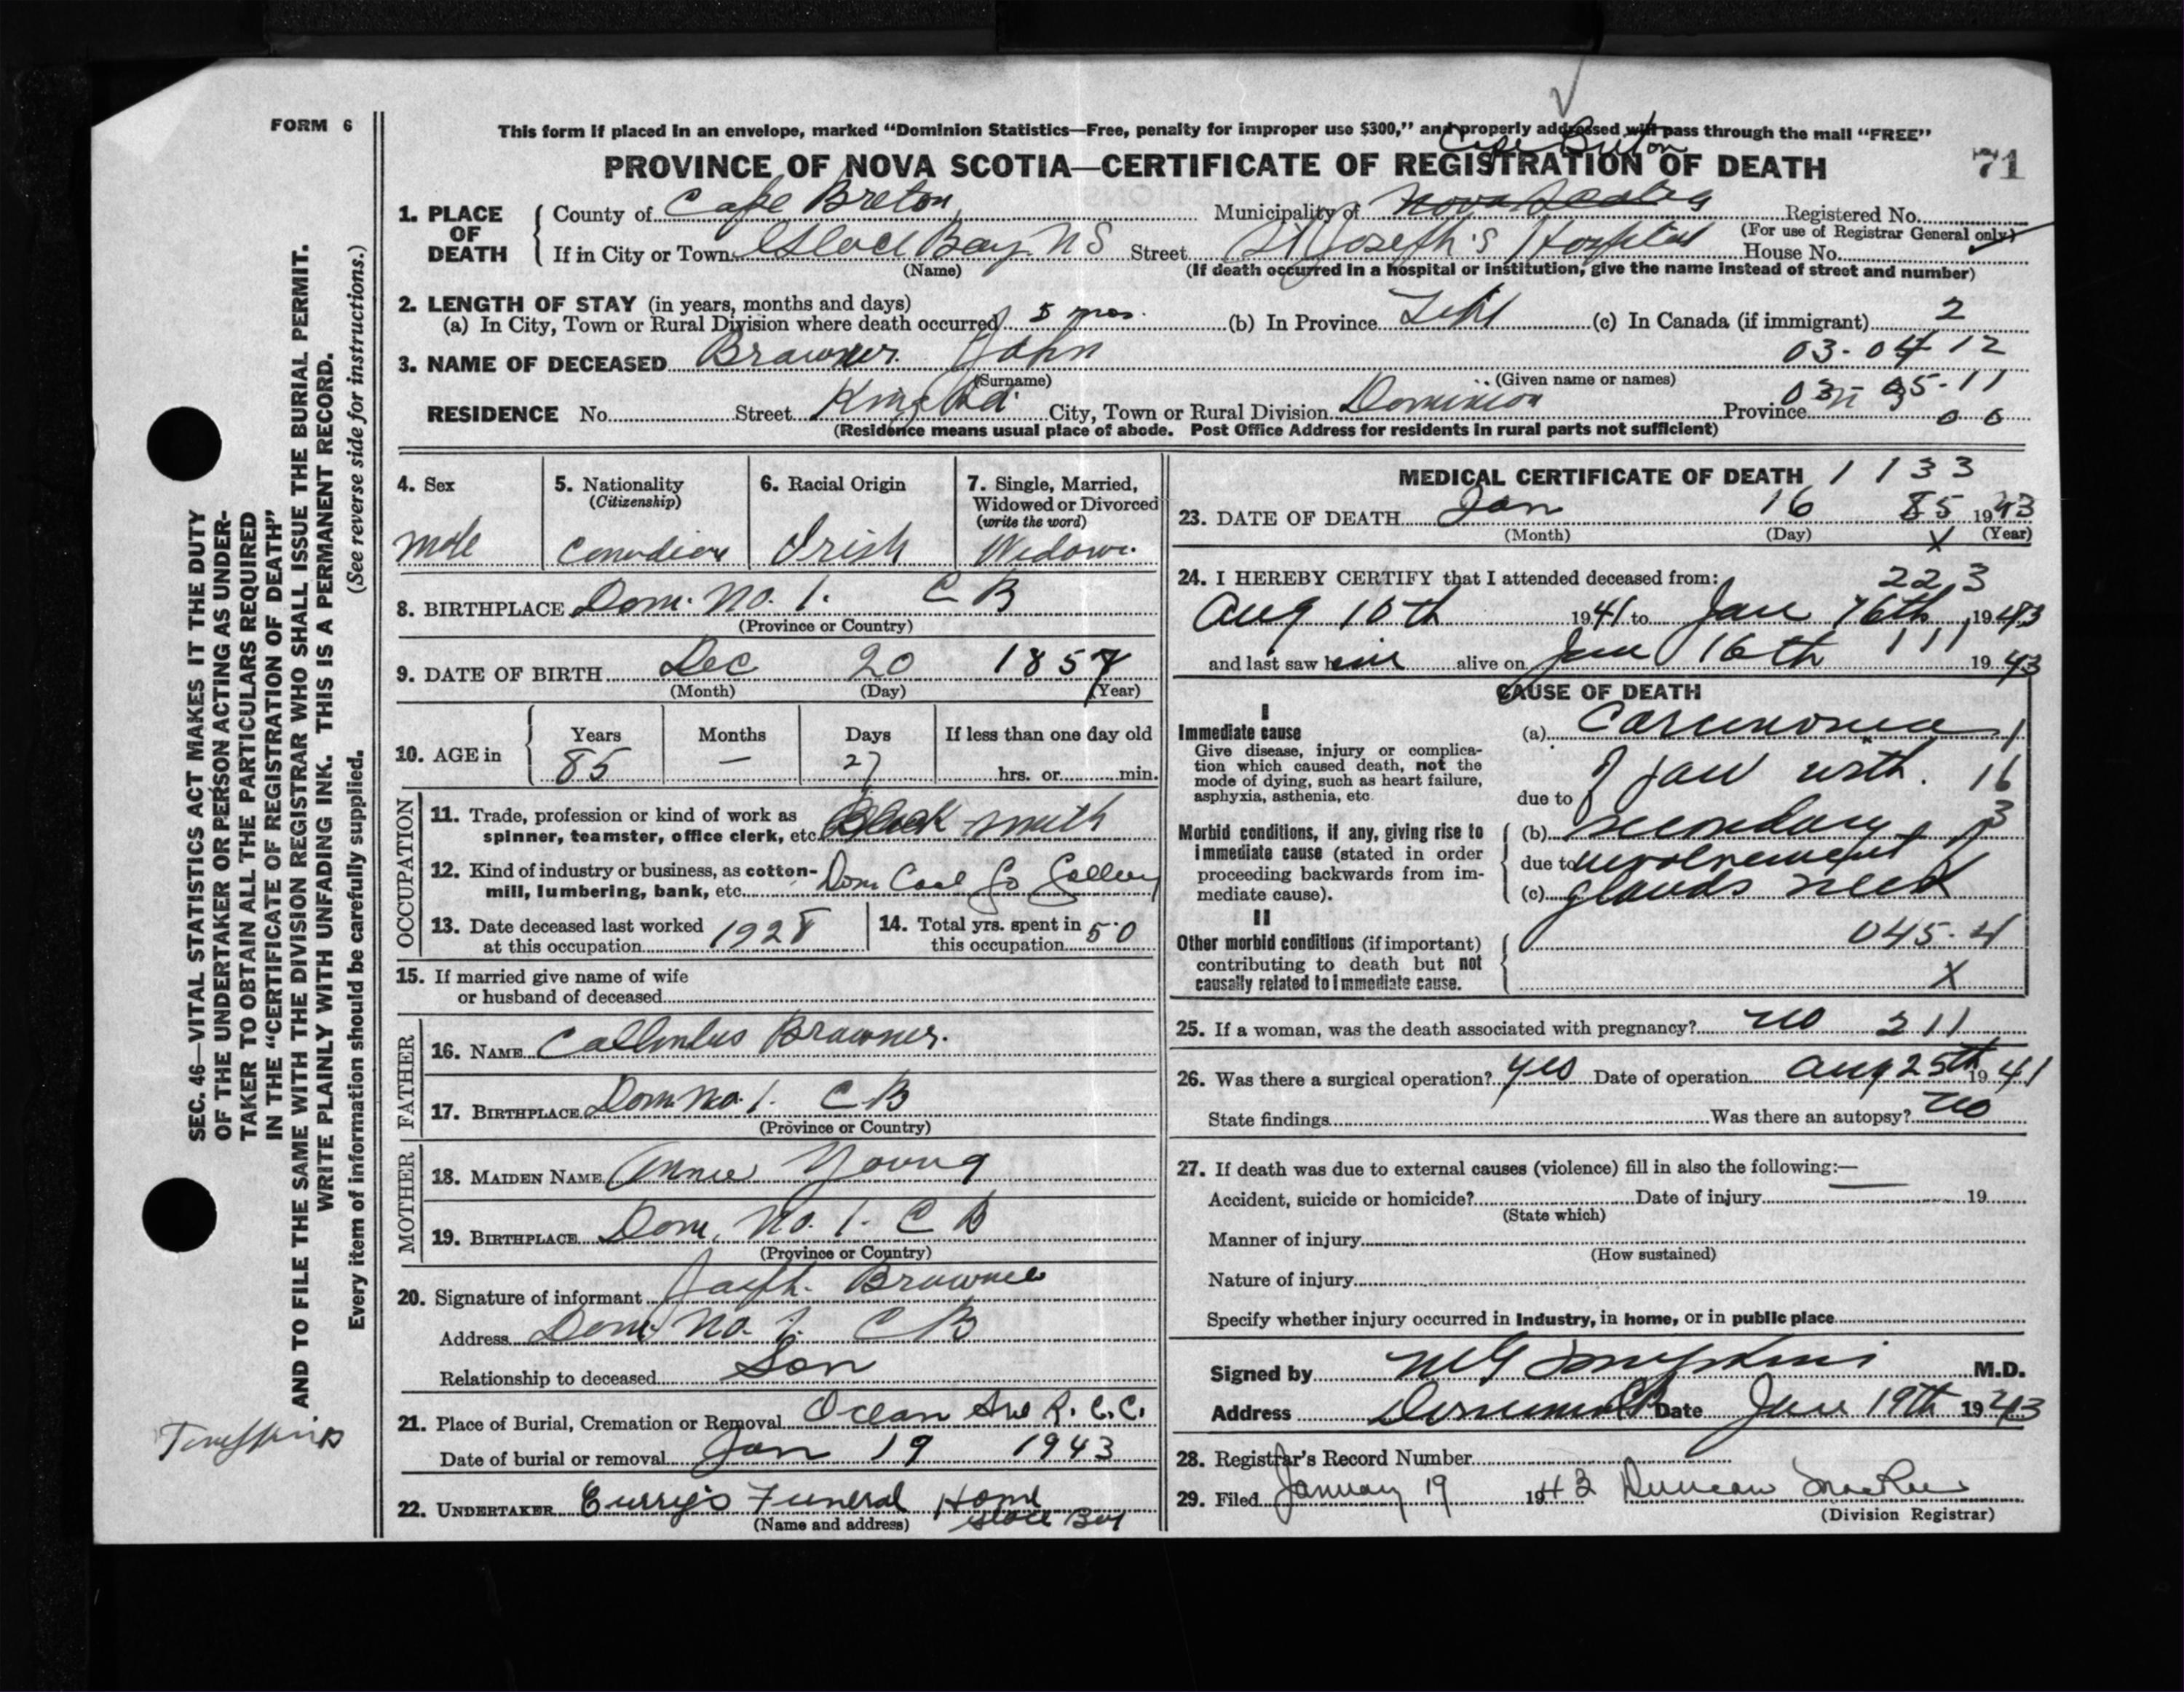 FORM 6
This form if placed in an envelope, marked "Dominion Statistics—Free, penalty for improper use $300," and properly addressed will pass through the mail "FREE"
Cape Breton
PROVINCE OF NOVA SCOTIA—CERTIFICATE OF REGISTRATION OF DEATH 71
1. PLACE OF DEATH
County of Cape Breton Municipality of Nova Scotia Registered No.
(For use of Registrar General only)
If in City or Town Glace Bay N S Street St Joseph's Hospital House No.
(Name) (If death occurred in a hospital or institution, give the name instead of street and number)
2. LENGTH OF STAY (in years, months and days)
(a) In City, Town or Rural Division where death occurred 5 mos. (b) In Province Life (c) In Canada (if immigrant) 2
03-04 12
3. NAME OF DECEASED Brawner John
(Surname) (Given name or names)
03 05-11
RESIDENCE No. Street King Rd. City, Town or Rural Division Dominion Province
00
(Residence means usual place of abode. Post Office Address for residents in rural parts not sufficient)
4. Sex
male
5. Nationality
(Citizenship)
Canadian
6. Racial Origin
Irish
7. Single, Married,
Widowed or Divorced
(write the word)
Widow.
8. BIRTHPLACE Dom. No. 1. C B
(Province or Country)
9. DATE OF BIRTH Dec 20 1857
(Month) (Day) (Year)
10. AGE in
Years Months Days If less than one day old
85 — 27 hrs. or min.
OCCUPATION
11. Trade, profession or kind of work as
spinner, teamster, office clerk, etc. Black smith
12. Kind of industry or business, as cotton-
mill, lumbering, bank, etc. Dom Coal Co
13. Date deceased last worked
at this occupation 1928
14. Total yrs. spent in
this occupation 50
15. If married give name of wife
or husband of deceased
FATHER
16. NAME Brawner.
17. BIRTHPLACE Dom. No. 1. C B
(Province or Country)
MOTHER
18. MAIDEN NAME Annie Young
19. BIRTHPLACE Dom. No. 1. C B
(Province or Country)
20. Signature of informant Joseph. Brawner
Address Dom. No. 1. C B
Relationship to deceased Son
21. Place of Burial, Cremation or Removal Ocean Ave R. C. C.
Date of burial or removal Jan 19 1943
22. UNDERTAKER Curry's Funeral Home
Glace Bay
(Name and address)
MEDICAL CERTIFICATE OF DEATH 1 133
23. DATE OF DEATH Jan 16 85 1943
(Month) (Day) (Year)
X
24. I HEREBY CERTIFY that I attended deceased from:
223
Aug 10th 1941 to Jan 16th, 1943
and last saw him alive on Jan 16th 111 1943
CAUSE OF DEATH
I
Immediate cause
Give disease, injury or complica-
tion which caused death, not the
mode of dying, such as heart failure,
asphyxia, asthenia, etc.
(a) Carcinoma 1
due to of jaw with. 16
Morbid conditions, if any, giving rise to
immediate cause (stated in order
proceeding backwards from im-
mediate cause).
(b) secondary 3
due to involvement of
(c) glands neck
II
Other morbid conditions (if important)
contributing to death but not
causally related to immediate cause.
045.4
X
25. If a woman, was the death associated with pregnancy? no 211
26. Was there a surgical operation? yes Date of operation Aug 25th 1941
State findings Was there an autopsy? no
27. If death was due to external causes (violence) fill in also the following:—
Accident, suicide or homicide? Date of injury 19
(State which)
Manner of injury
(How sustained)
Nature of injury
Specify whether injury occurred in industry, in home, or in public place
Signed by M G Tompkins M.D.
Address Dominion CB Date Jan 19th 1943
28. Registrar's Record Number
29. Filed January 19 1943 Duncan
(Division Registrar)
SEC. 46—VITAL STATISTICS ACT MAKES IT THE DUTY
OF THE UNDERTAKER OR PERSON ACTING AS UNDER-
TAKER TO OBTAIN ALL THE PARTICULARS REQUIRED
IN THE "CERTIFICATE OF REGISTRATION OF DEATH"
AND TO FILE THE SAME WITH THE DIVISION REGISTRAR WHO SHALL ISSUE THE BURIAL PERMIT.
WRITE PLAINLY WITH UNFADING INK. THIS IS A PERMANENT RECORD.
Every item of information should be carefully supplied. (See reverse side for instructions.)
Tompkins